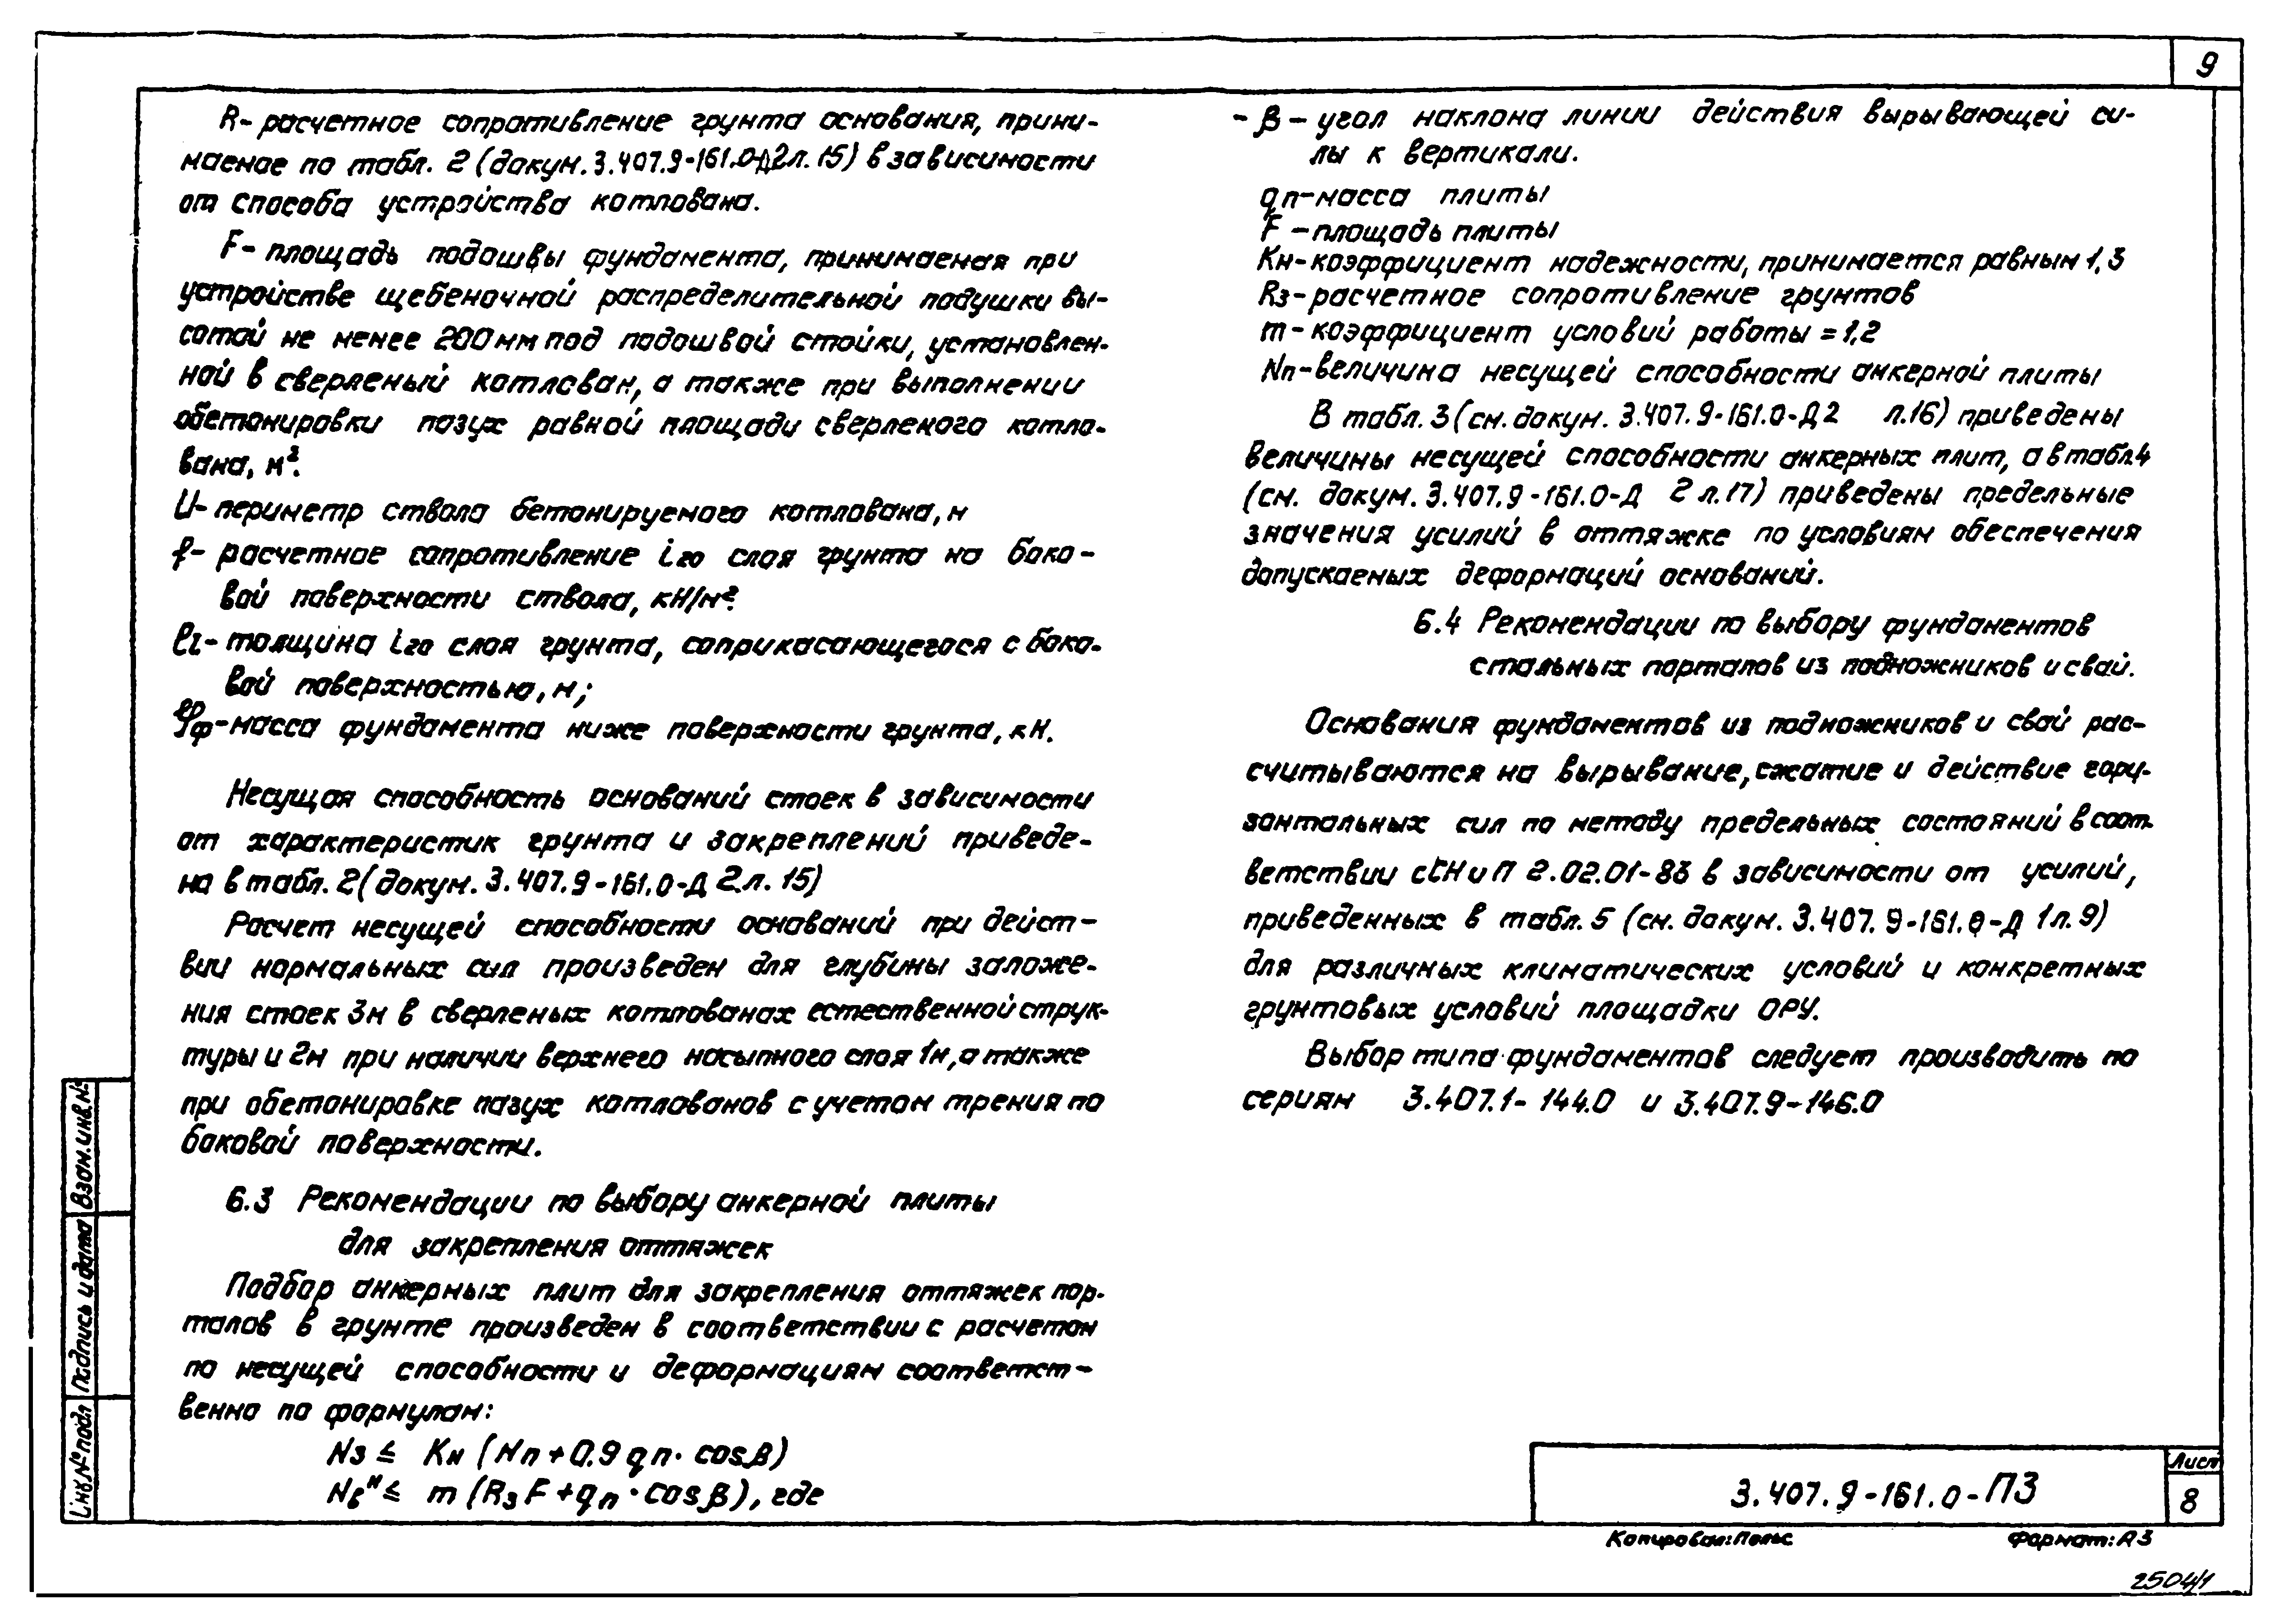 9
R- расчетное сопротивление грунта основания, прини-
маемое по табл. 2 (докум. 3.407.9-161.0-Д2л. 15) в зависимости
от способа устройства котлована.
F- площадь подошвы фундамента, принимаемая при
устройстве щебеночной распределительной подушки вы-
сотой не менее 200мм под подошвой стойки, установлен-
ной в сверленый котлован, а также при выполнении
обетонировки пазух равной площади сверленого котло-
вана, м².
U- периметр ствола бетонируемого котлована, м
f- расчетное сопротивление iго слоя грунта на боко-
вой поверхности ствола, кН/м².
li- толщина iго слоя грунта, соприкасающегося с боко-
вой поверхностью, м;
gф-масса фундамента ниже поверхности грунта, кН.
Несущая способность оснований стоек в зависимости
от характеристик грунта и закреплений приведе-
на в табл. 2(докум. 3.407.9-161.0-Д 2л. 15)
Расчет несущей способности оснований при дейст-
вии нормальных сил произведен для глубины заложе-
ния стоек 3м в сверленых котлованах естественной струк-
туры и 2м при наличии верхнего насыпного слоя 1м, а также
при обетонировке пазух котлованов с учетом трения по
боковой поверхности.
6.3 Рекомендации по выбору анкерной плиты
для закрепления оттяжек
Подбор анкерных плит для закрепления оттяжек пор-
талов в грунте произведен в соответствии с расчетом
по несущей способности и деформациям соответст-
венно по формулам:
Nз ≤ Kн (Nп + 0.9 qп · cosβ)
Nвᴴ ≤ m (Rз F + qп · cosβ), где
- β - угол наклона линии действия вырывающей си-
лы к вертикали.
qп-масса плиты
F -площадь плиты
Kн-коэффициент надежности, принимается равным 1,3
Rз-расчетное сопротивление грунтов
m-коэффициент условий работы = 1,2
Nп-величина несущей способности анкерной плиты
В табл. 3 (см. докум. 3.407.9-161.0-Д2 л.16) приведены
величины несущей способности анкерных плит, а в табл.4
(см. докум. 3.407.9-161.0-Д 2 л.17) приведены предельные
значения усилий в оттяжке по условиям обеспечения
допускаемых деформаций оснований.
6.4 Рекомендации по выбору фундаментов
стальных порталов из подножников и свай.
Основания фундаментов из подножников и свай рас-
считываются на вырывание, сжатие и действие гори-
зонтальных сил по методу предельных состояний в соот-
ветствии с СНиП 2.02.01-83 в зависимости от усилий,
приведенных в табл. 5 (см. докум. 3.407.9-161.0-Д 1л. 9)
для различных климатических условий и конкретных
грунтовых условий площадки ОРУ.
Выбор типа фундаментов следует производить по
сериям 3.407.1-144.0 и 3.407.9-146.0
Взам. инв. №
Подпись и дата
Инв.№ подл
3.407.9-161.0-ПЗ
Лист
8
Копировал: Польс
Формат: А3
2504/1